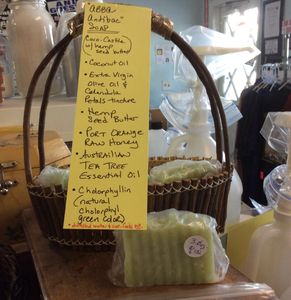 "abba
Antibac"
SOAP
(Coco-Castile
w/hemp
seed butter)
• Coconut Oil
• Extra Virgin
Olive Oil &
Calendula
Petals-tincture
• Hemp
Seed Butter
• PORT ORANGE
RAW Honey
• AUSTRAILIAN
TEA TREE
Essential Oil
• Cholorphyllin
(natural
cholorphyl
green color)